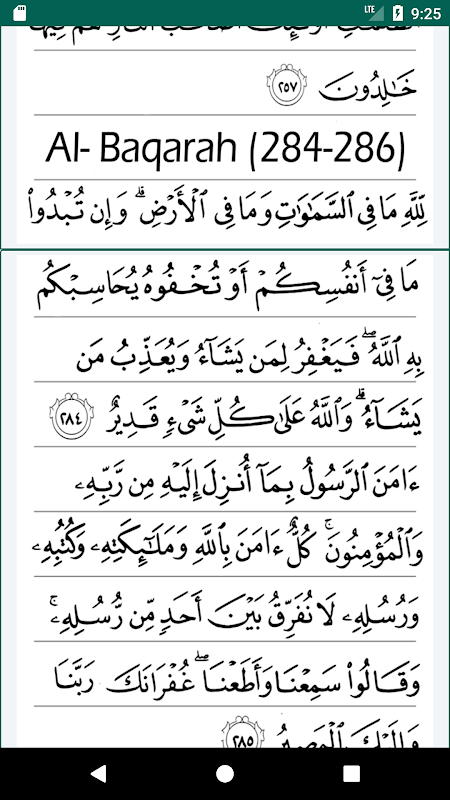 LTE 9:25
أَصْحَٰبُ ٱلنَّارِ هُمْ فِيهَا
خَٰلِدُونَ ٢٥٧
Al- Baqarah (284-286)
لِّلَّهِ مَا فِى ٱلسَّمَٰوَٰتِ وَمَا فِى ٱلْأَرْضِ ۗ وَإِن تُبْدُوا۟
مَا فِىٓ أَنفُسِكُمْ أَوْ تُخْفُوهُ يُحَاسِبْكُم
بِهِ ٱللَّهُ ۖ فَيَغْفِرُ لِمَن يَشَآءُ وَيُعَذِّبُ مَن
يَشَآءُ ۗ وَٱللَّهُ عَلَىٰ كُلِّ شَىْءٍ قَدِيرٌ ٢٨٤
ءَامَنَ ٱلرَّسُولُ بِمَآ أُنزِلَ إِلَيْهِ مِن رَّبِّهِۦ
وَٱلْمُؤْمِنُونَ ۚ كُلٌّ ءَامَنَ بِٱللَّهِ وَمَلَٰٓئِكَتِهِۦ وَكُتُبِهِۦ
وَرُسُلِهِۦ لَا نُفَرِّقُ بَيْنَ أَحَدٍ مِّن رُّسُلِهِۦ ۚ
وَقَالُوا۟ سَمِعْنَا وَأَطَعْنَا ۖ غُفْرَانَكَ رَبَّنَا
وَإِلَيْكَ ٱلْمَصِيرُ ٢٨٥